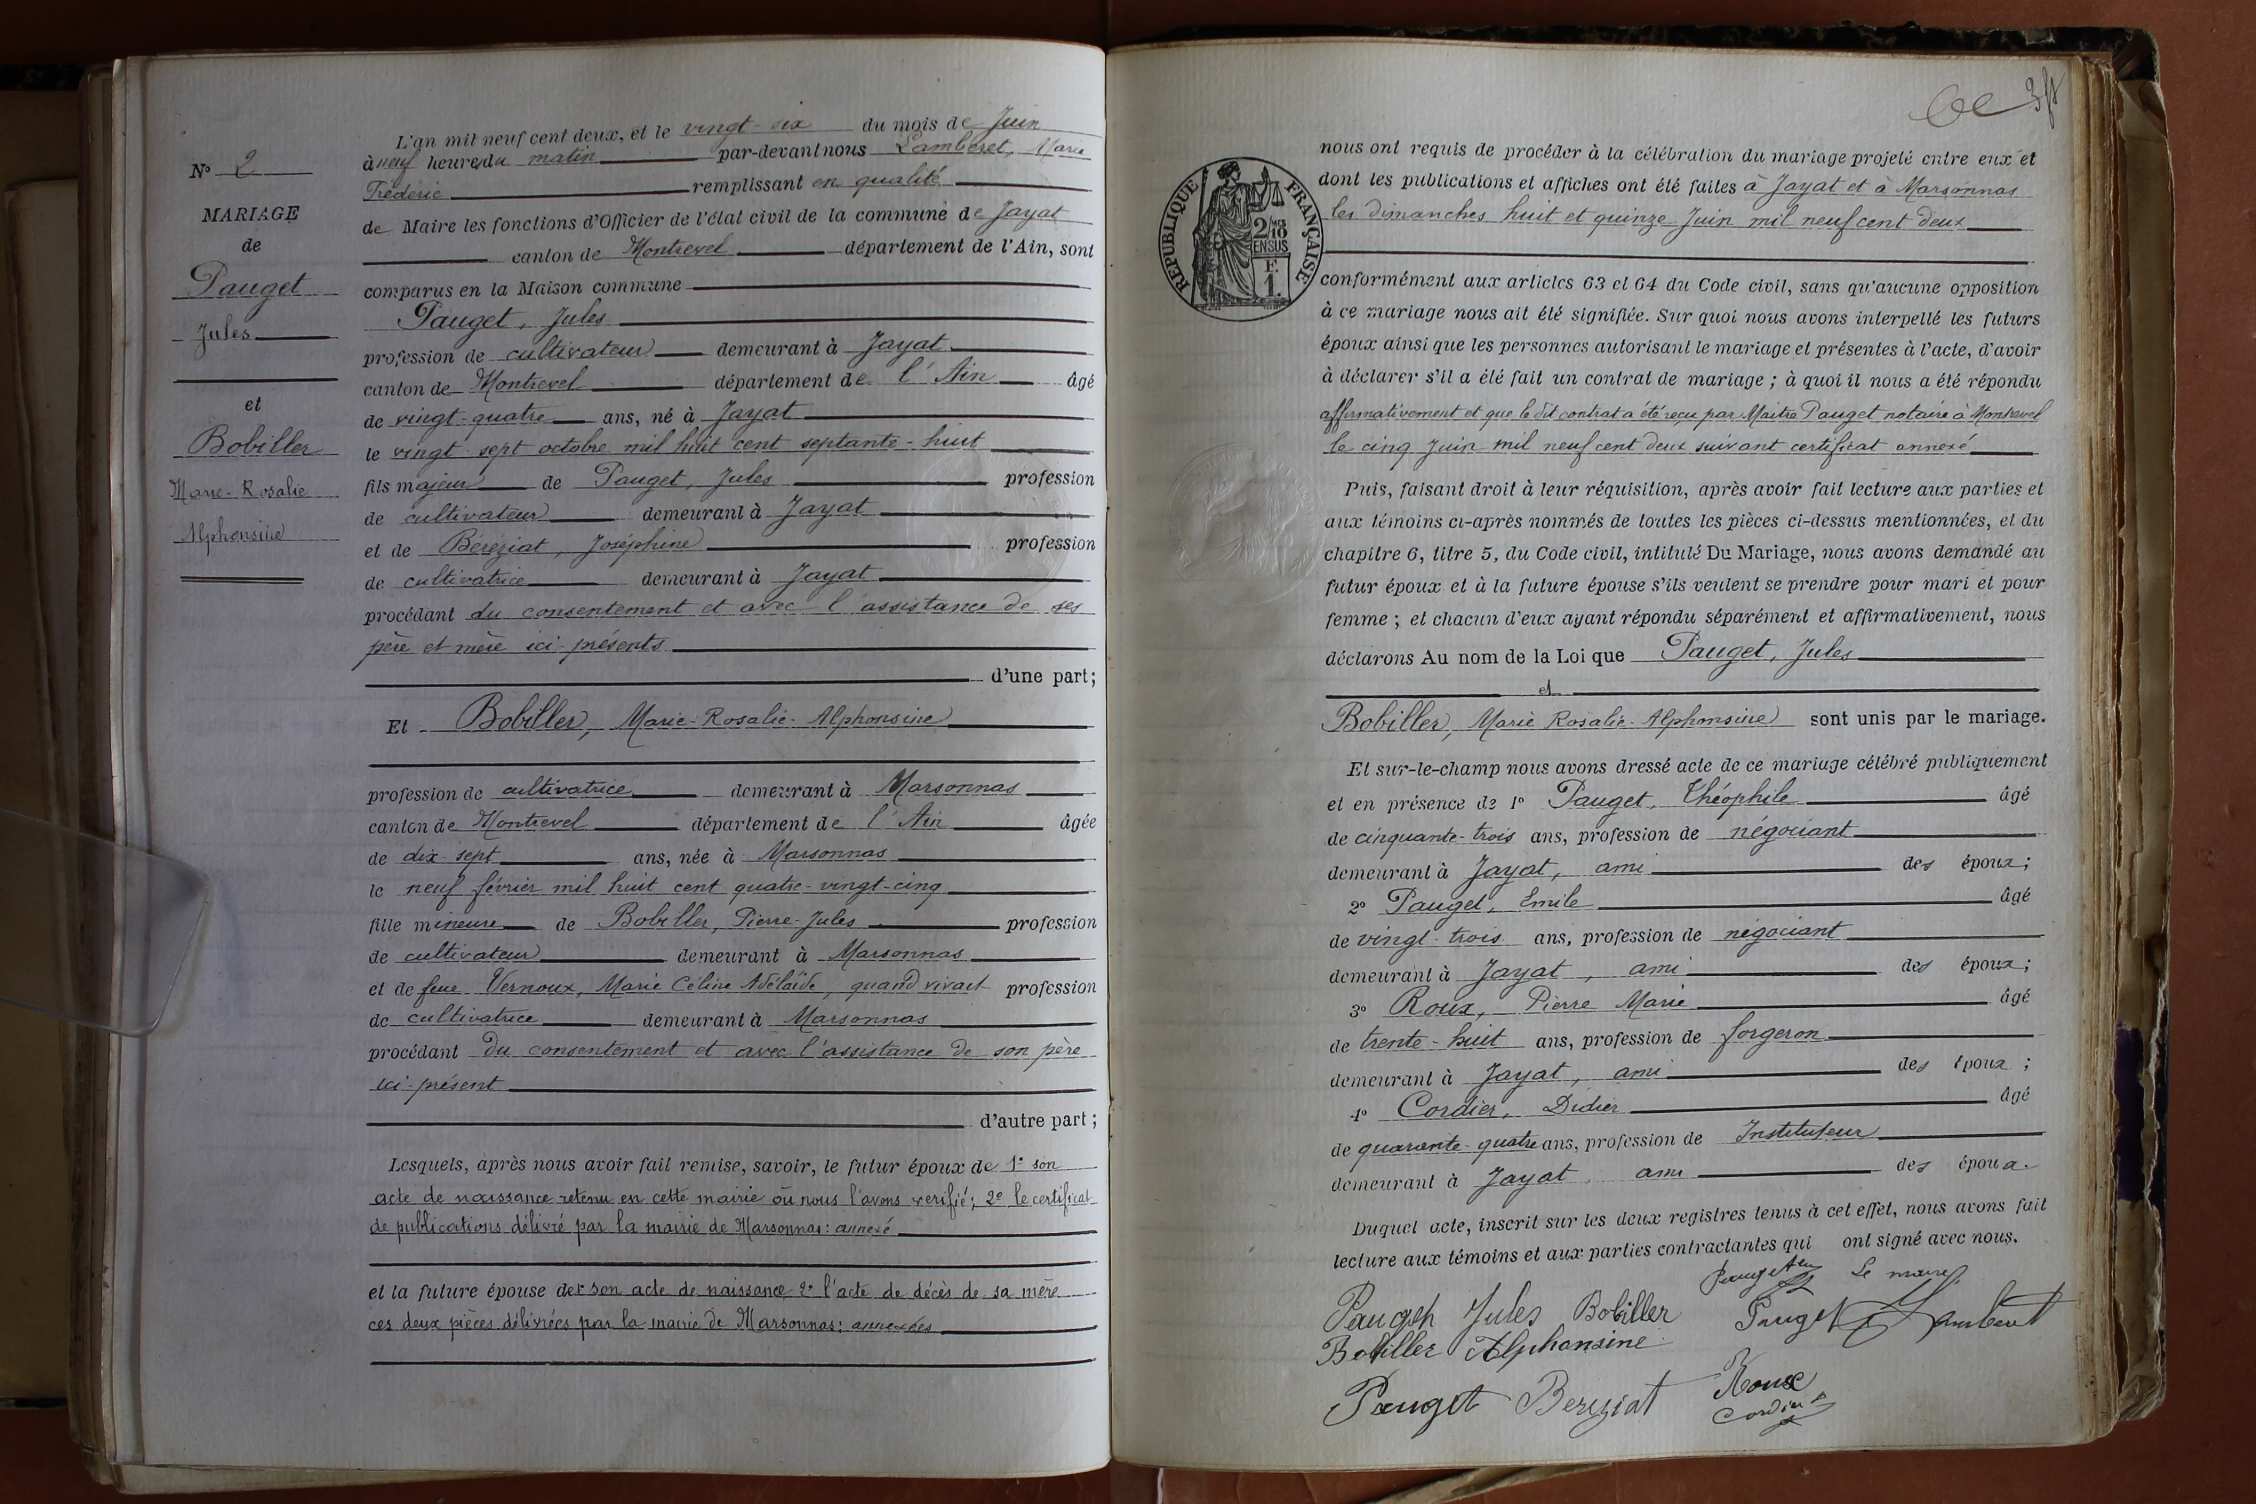 N° 2
MARIAGE
de
Pauget
Jules
et
Bobiller
Marie-Rosalie
Alphonsine
L'an mil neuf cent deux, et le vingt-six du mois de Juin
à neuf heures du matin par-devant nous Lamberet, Marie
Frédéric remplissant en qualité
de Maire les fonctions d'Officier de l'état civil de la commune de Jayat
canton de Montrevel département de l'Ain, sont
comparus en la Maison commune
Pauget, Jules
profession de cultivateur demeurant à Jayat
canton de Montrevel département de l'Ain âgé
de vingt-quatre ans, né à Jayat
le vingt-sept octobre mil huit cent septante-huit
fils majeur de Pauget, Jules profession
de cultivateur demeurant à Jayat
et de Béréziat, Joséphine profession
de cultivatrice demeurant à Jayat
procédant du consentement et avec l'assistance de ses
père et mère ici-présents
d'une part;
Et Bobiller, Marie-Rosalie-Alphonsine
profession de cultivatrice demeurant à Marsonnas
canton de Montrevel département de l'Ain âgée
de dix-sept ans, née à Marsonnas
le neuf février mil huit cent quatre-vingt-cinq
fille mineure de Bobiller, Pierre-Jules profession
de cultivateur demeurant à Marsonnas
et de feue Vernoux, Marie Céline Adélaïde, quand vivait profession
de cultivatrice demeurant à Marsonnas
procédant du consentement et avec l'assistance de son père
ici-présent
d'autre part;
Lesquels, après nous avoir fait remise, savoir, le futur époux de 1° son
acte de naissance retenu en cette mairie où nous l'avons verifié; 2° le certificat
de publications délivré par la mairie de Marsonnas: annexé
et la future épouse de 1° son acte de naissance 2° l'acte de décès de sa mère
ces deux pièces délivrées par la mairie de Marsonnas: annexées
RÉPUBLIQUE FRANÇAISE
2/10
EN SUS
F.
1.
nous ont requis de procéder à la célébration du mariage projeté entre eux et
dont les publications et affiches ont été faites à Jayat et à Marsonnas
les dimanches huit et quinze Juin mil neuf cent deux
conformément aux articles 63 et 64 du Code civil, sans qu'aucune opposition
à ce mariage nous ait été signifiée. Sur quoi nous avons interpellé les futurs
époux ainsi que les personnes autorisant le mariage et présentes à l'acte, d'avoir
à déclarer s'il a été fait un contrat de mariage; à quoi il nous a été répondu
affirmativement et que le dit contrat a été reçu par Maître Pauget notaire à Montrevel
le cinq Juin mil neuf cent deux suivant certificat annexé
Puis, faisant droit à leur réquisition, après avoir fait lecture aux parties et
aux témoins ci-après nommés de toutes les pièces ci-dessus mentionnées, et du
chapitre 6, titre 5, du Code civil, intitulé Du Mariage, nous avons demandé au
futur époux et à la future épouse s'ils veulent se prendre pour mari et pour
femme; et chacun d'eux ayant répondu séparément et affirmativement, nous
déclarons Au nom de la Loi que Pauget, Jules
et
Bobiller, Marie Rosalie-Alphonsine sont unis par le mariage.
Et sur-le-champ nous avons dressé acte de ce mariage célébré publiquement
et en présence de 1° Pauget, Théophile âgé
de cinquante-trois ans, profession de négociant
demeurant à Jayat, ami des époux;
2° Pauget, Emile âgé
de vingt-trois ans, profession de négociant
demeurant à Jayat, ami des époux;
3° Roux, Pierre Marie âgé
de trente-huit ans, profession de forgeron
demeurant à Jayat, ami des époux;
4° Cordier, Didier âgé
de quarante-quatre ans, profession de Instituteur
demeurant à Jayat ami des époux.
Duquel acte, inscrit sur les deux registres tenus à cet effet, nous avons fait
lecture aux témoins et aux parties contractantes qui ont signé avec nous.
Le maire,
Pauget Jules Bobiller Pauget Lamberet
Bobiller Alphonsine
Pauget Bereziat Roux
Cordier